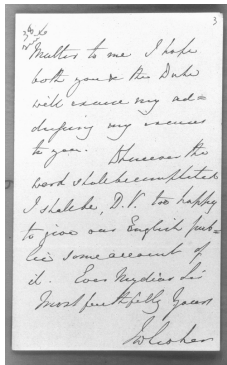 3
Matter to me I hope
both you & the Duke
will excuse my ad=
dressing my excuses
to you. Whenever the
work shall be completed
I shall be, D.V. too happy
to give our English pub=
lic some account of
it. Ever My dear Sir
Most faithfully Yours